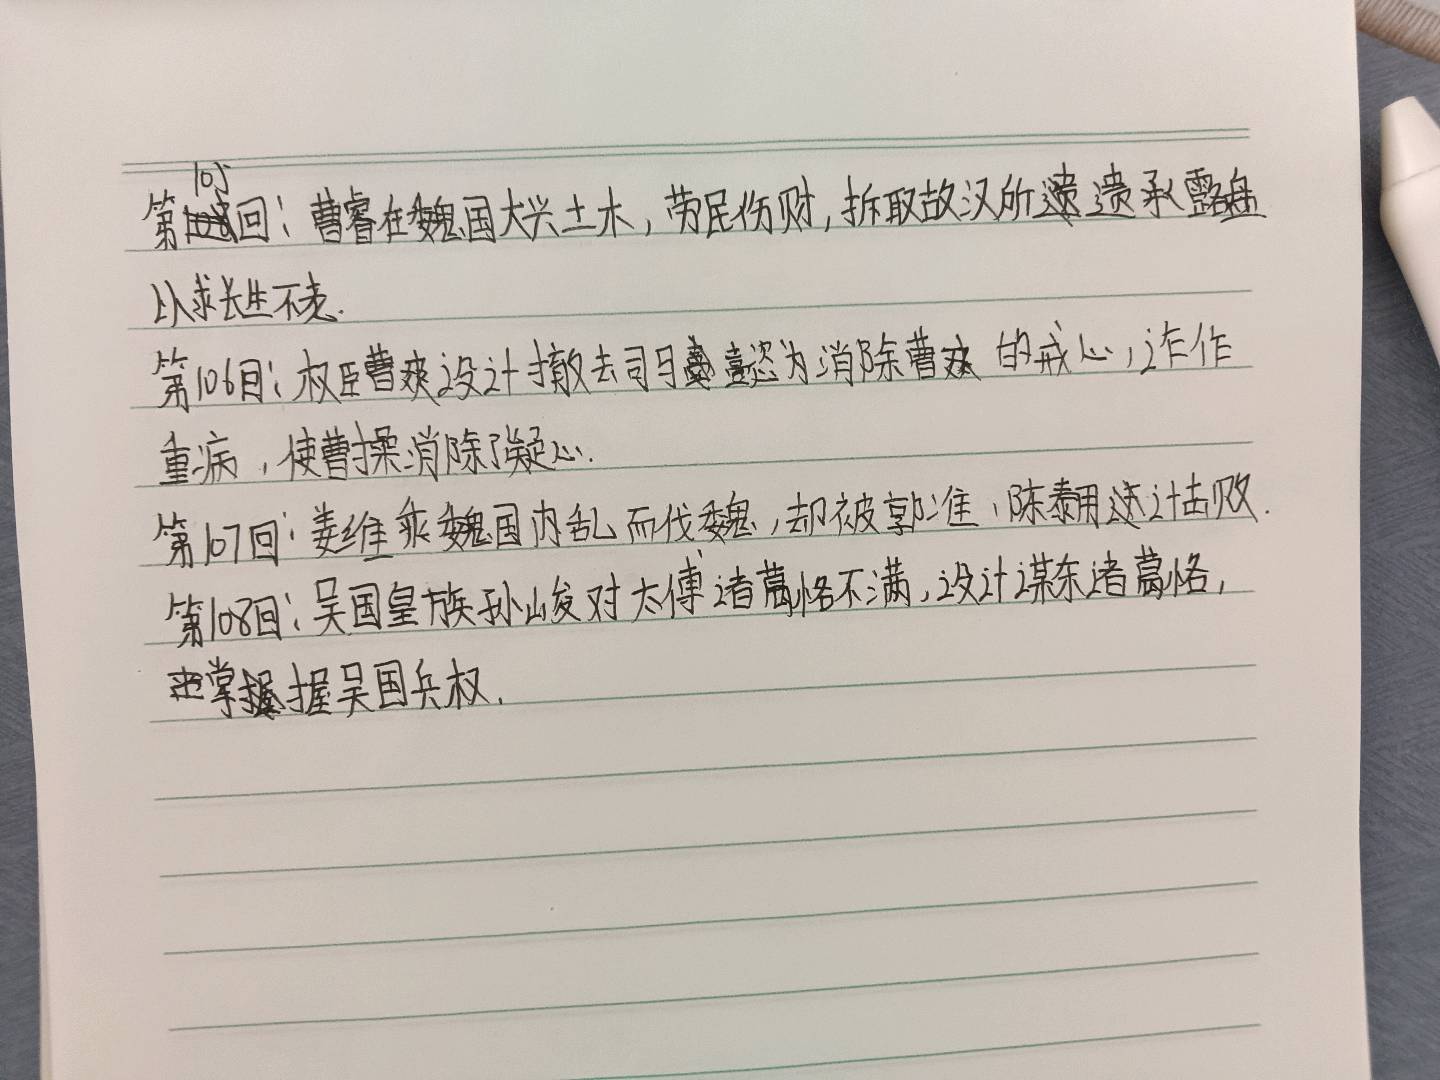 第105回：曹睿在魏国大兴土木，劳民伤财，拆取故汉所遗承露盘
以求长生不老.
第106回：权臣曹爽设计撤去司马懿为消除曹爽的戒心，诈作
重病，使曹操消除了疑心.
第107回：姜维乘魏国内乱而伐魏，却被郭淮，陈泰用计击败.
第108回：吴国皇族孙峻对太傅诸葛恪不满，设计谋东诸葛恪，
掌握吴国兵权.